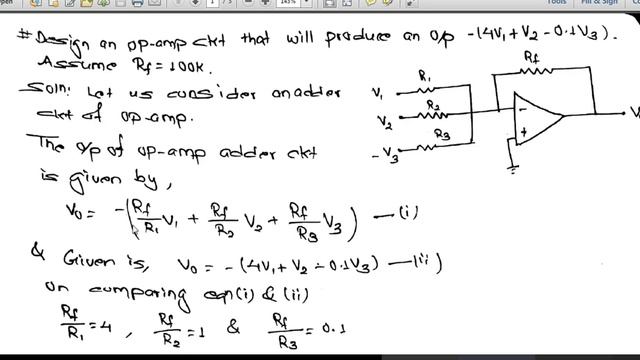 Tools Fill & Sign
# Design an op-amp ckt that will produce an o/p -(4V1 + V2 - 0.1V3).
Assume Rf = 100K.
Soln: Let us consider an adder
ckt of op-amp.
The o/p of op-amp adder ckt
is given by,
V0 = -(Rf/R1 V1 + Rf/R2 V2 + Rf/R3 V3) —(i)
& Given is, V0 = -(4V1 + V2 - 0.1V3) —(ii)
on comparing eqn(i) & (ii)
Rf/R1 = 4, Rf/R2 = 1 & Rf/R3 = 0.1
Rf
V1 R1
V2 R2
-V3 R3
-
+